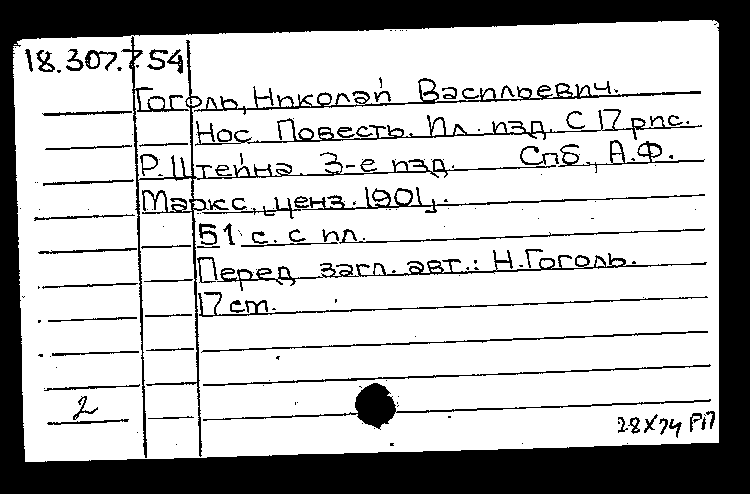 18.307.7.54
Гоголь, Николай Васильевич.
Нос. Повесть. Ил. изд. С 17 рис.
Р. Штейна. 3-е изд. Спб., А.Ф.
Маркс, ценз. 1901.
51 с. с ил.
Перед загл. авт.: Н. Гоголь.
17 см.
2
28X74 РП